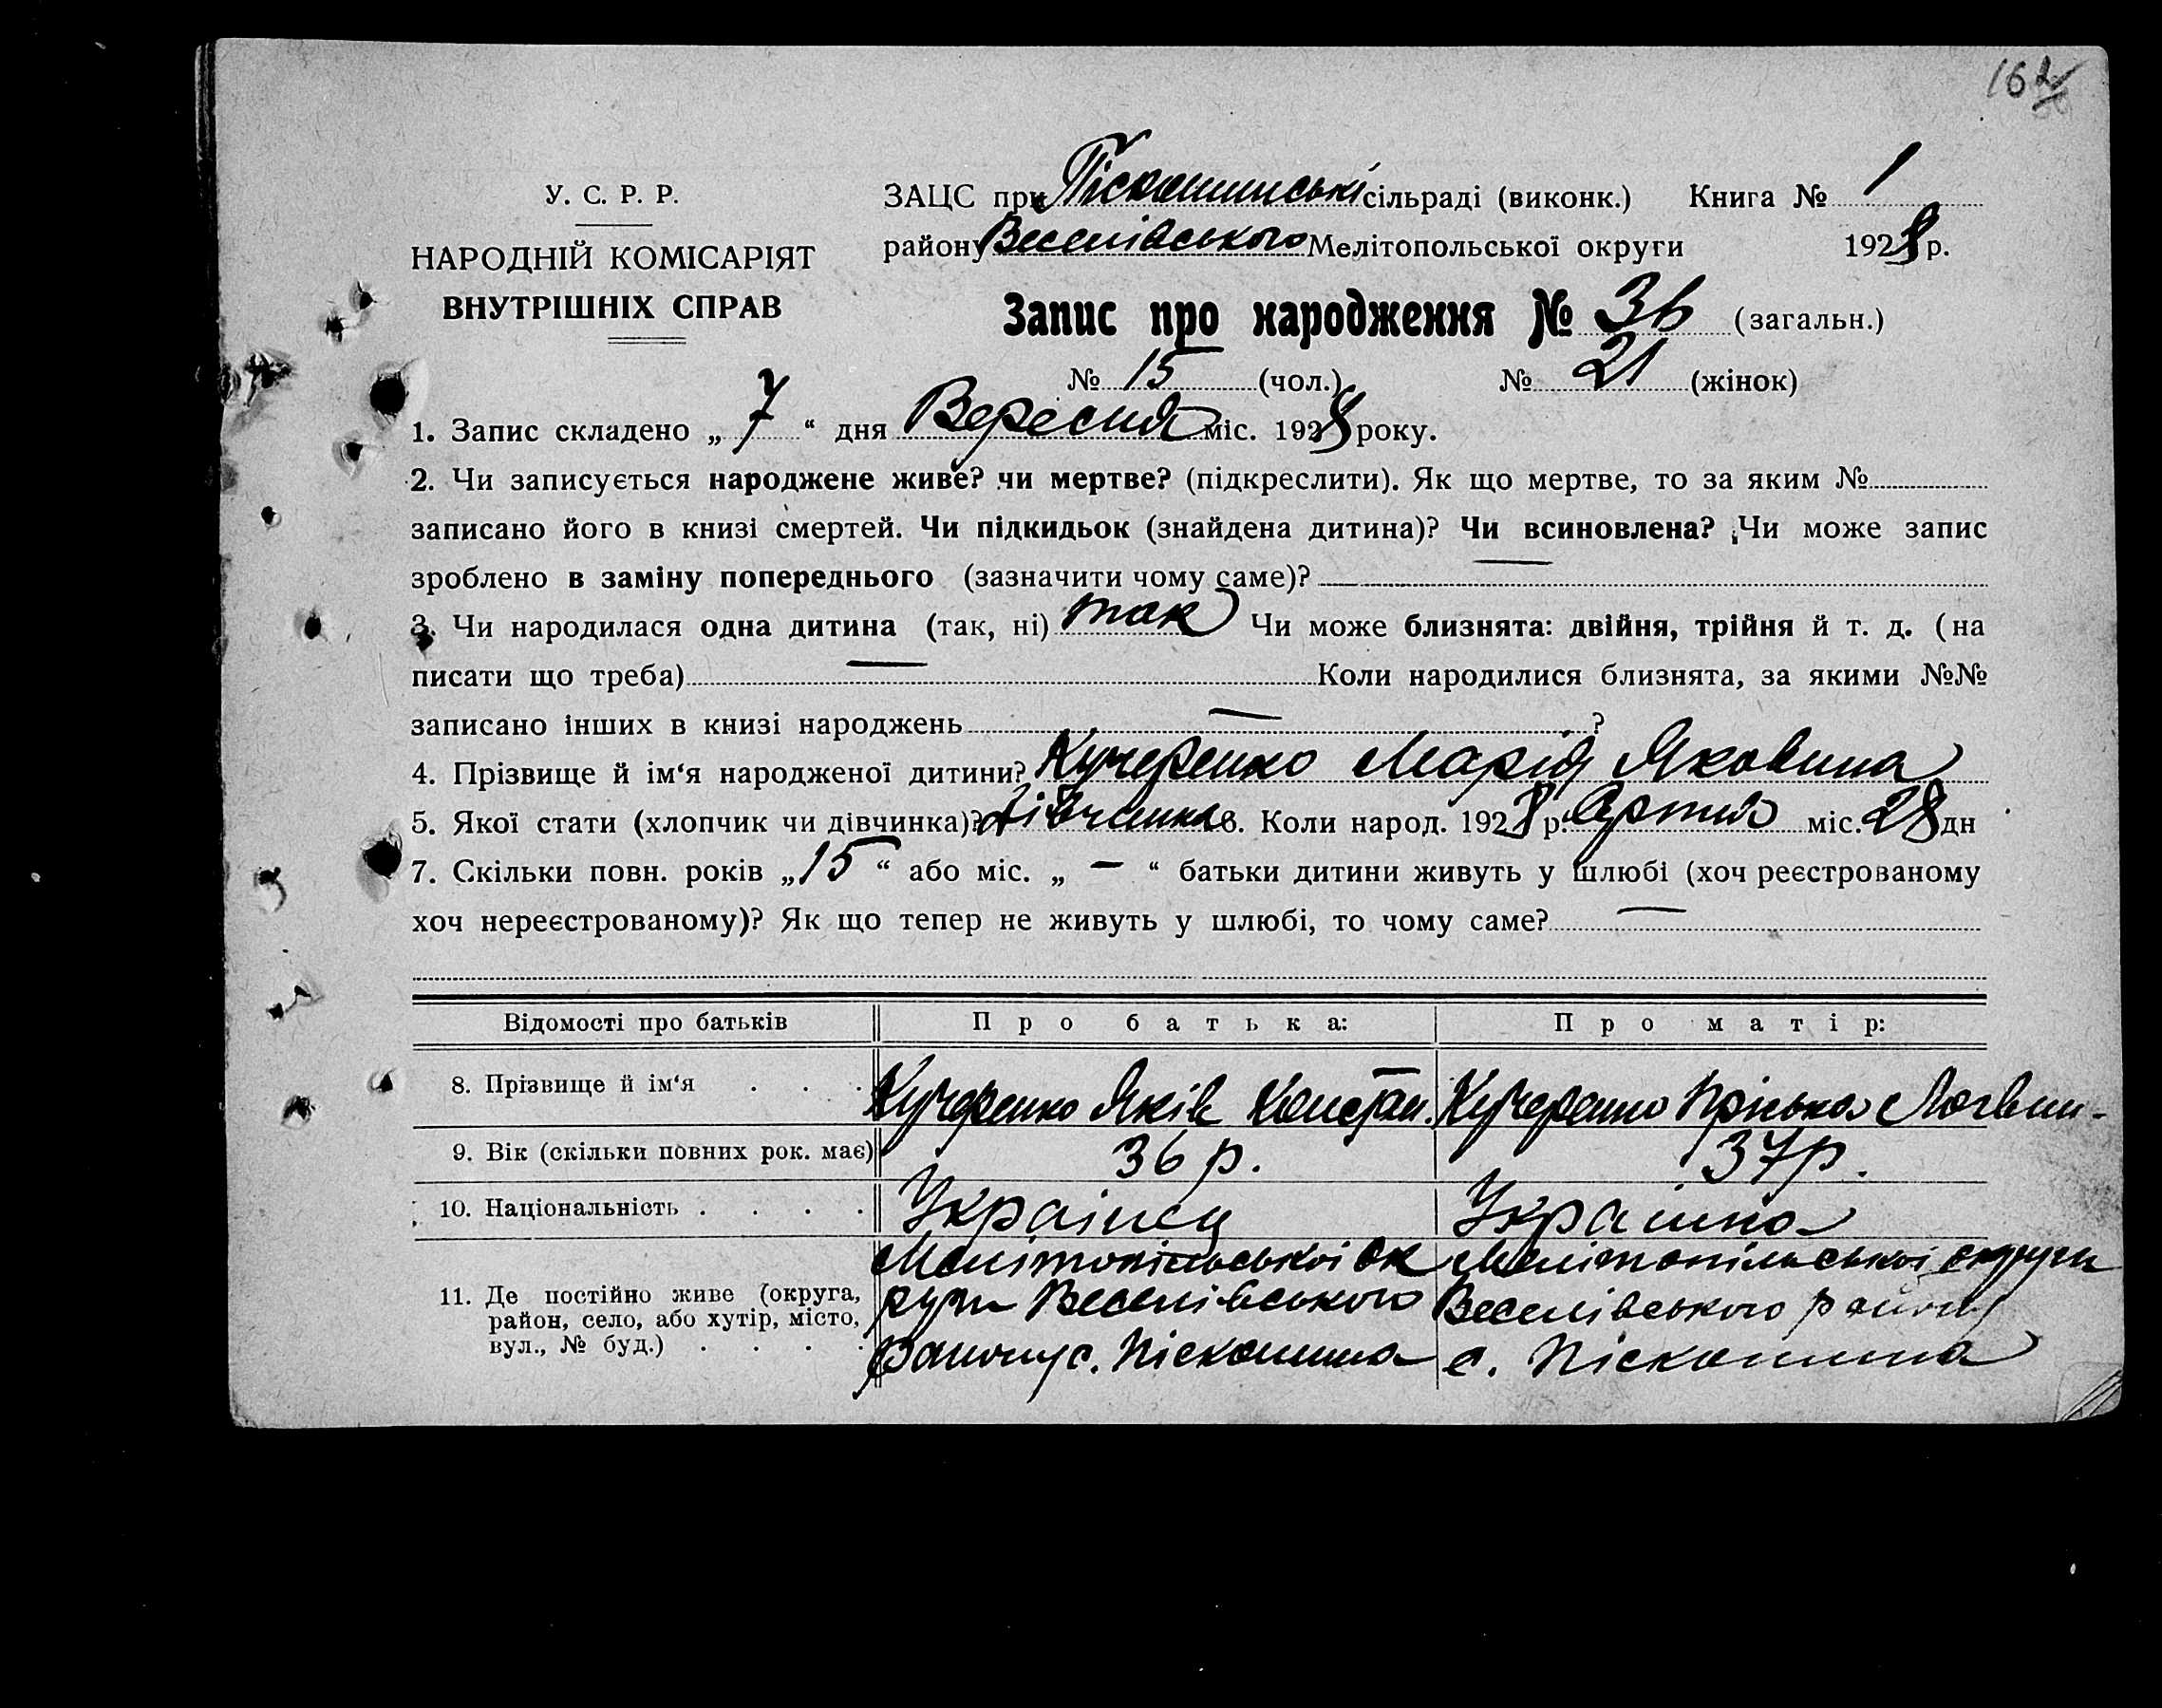 162
У. С. Р. Р.
НАРОДНІЙ КОМІСАРІЯТ
ВНУТРІШНІХ СПРАВ
ЗАЦС при Піскошинські сільраді (виконк.) Книга № 1
району Веселівського Мелітопольської округи 1928 р.
Запис про народження № 36 (загальн.)
№ 15 (чол.) № 21 (жінок)
1. Запис складено „ 7 “ дня Вересня міс. 1928 року.
2. Чи записується народжене живе? чи мертве? (підкреслити). Як що мертве, то за яким №
записано його в книзі смертей. Чи підкидьок (знайдена дитина)? Чи всиновлена? Чи може запис
зроблено в заміну попереднього (зазначити чому саме)? —
3. Чи народилася одна дитина (так, ні) так Чи може близнята: двійня, трійня й т. д. (на
писати що треба) — Коли народилися близнята, за якими №№
записано інших в книзі народжень — ?
4. Прізвище й ім‘я народженої дитини? Кучеренко Марія Яковина
5. Якої стати (хлопчик чи дівчинка)? дівчинка 6. Коли народ. 1928 р. Серпня міс. 28 дн
7. Скільки повн. років „ 15 “ або міс. „ — “ батьки дитини живуть у шлюбі (хоч реєстрованому
хоч нереєстрованому)? Як що тепер не живуть у шлюбі, то чому саме? —
Відомості про батьків Про батька: Про матір:
8. Прізвище й ім‘я . . . Кучеренко Яків Констан. Кучеренко Прiська Логвин-
9. Вік (скільки повних рок. має) 36 р. 37 р.
10. Національність . . . . Українец Українка
11. Де постійно живе (округа, район, село, або хутір, місто, вул., № буд.) . . . .
Мелітопільської ок
руги Веселівського
району с. Піскошина
Мелітопільської округи
Веселівського району
с. Піскошина